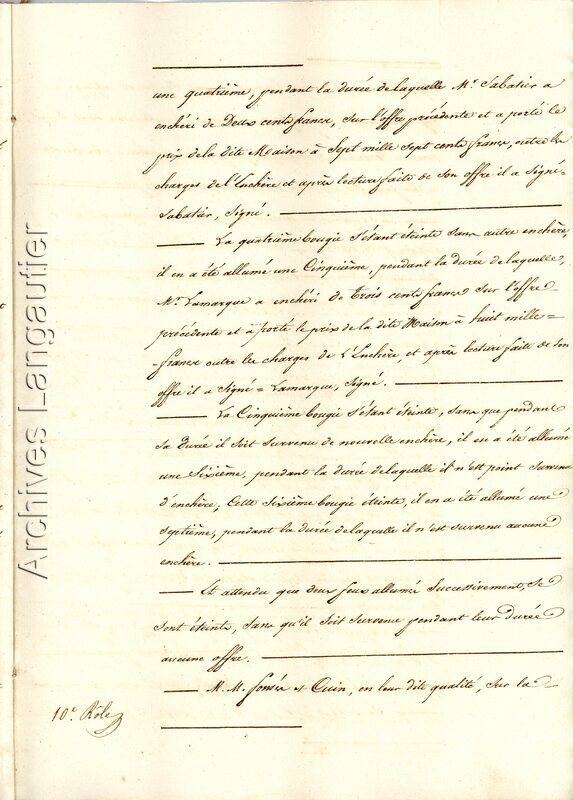 une quatrième, pendant la durée de laquelle Mr. Sabatier a
enchéri de Deux cents francs, sur l'offre précédente et a porté le
prix de la dite Maison à Sept mille sept cents francs, outre les
charges de l'Enchère et après lecture faite de son offre il a signé =
Sabatier, signé.
La quatrième bougie s'étant éteinte sans autre enchère,
il en a été allumé une Cinquième, pendant la durée de laquelle,
Mr. Lamarque a enchéri de trois cents francs sur l'offre
précédente et a porté le prix de la dite Maison à huit mille =
francs outre les charges de l'Enchère, et après lecture faite de son
offre il a signé = Lamarque, signé.
La Cinquième bougie s'étant éteinte, sans que pendant
sa durée il soit survenu de nouvelle enchère, il en a été allumé
une Sixième, pendant la durée de laquelle il n'est point survenu
d'enchère, Cette sixième bougie éteinte, il en a été allumé une
septième, pendant la durée de laquelle il n'est survenu aucune
enchère.
Et attendu que deux feux allumés Successivement, se
sont éteints, sans qu'il soit survenu pendant leur durée
aucune offre.
M. M. et Cuin, en leur dite qualité, sur la
10e. Rôle
Archives Langautier